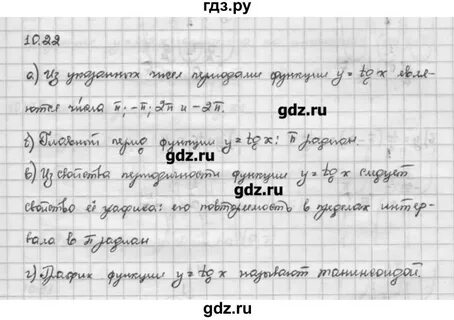 гдз.ру
10.22
а) Из указанных чисел периодами функции y = tg x явля-
ются числа π; -π; 2π и -2π.
гдз.ру
гдз.ру
б) Главный период функции y = tg x: π радиан.
в) Из свойства периодичности функции y = tg x следует
свойство её графика: его повторяемость в пределах интер-
вала в π радиан
гдз.ру
гдз.ру
г) График функции y = tg x называют тангенсоидой.
гдз.ру